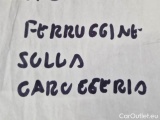 FERRUGGINE
SULLA
CAROZZERIA
CarOutlet.eu